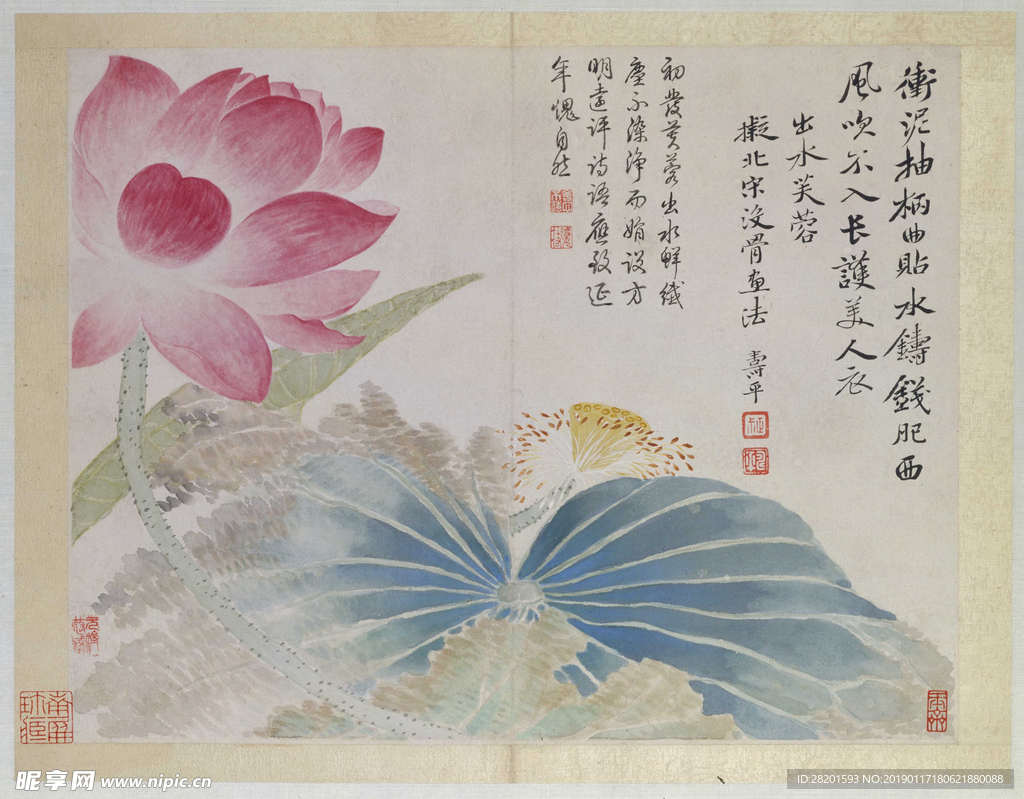 衝泥抽柄曲貼水鑄錢肥西
風吹不入长護美人衣
出水芙蓉
擬北宋没骨畫法 壽平
初發芙蓉出水鲜纖
塵不染淨而娟設方
明遠评诗语應致延
年愧自然
昵享网 www.nipic.cn
ID:28201593 NO:20190117180621880088